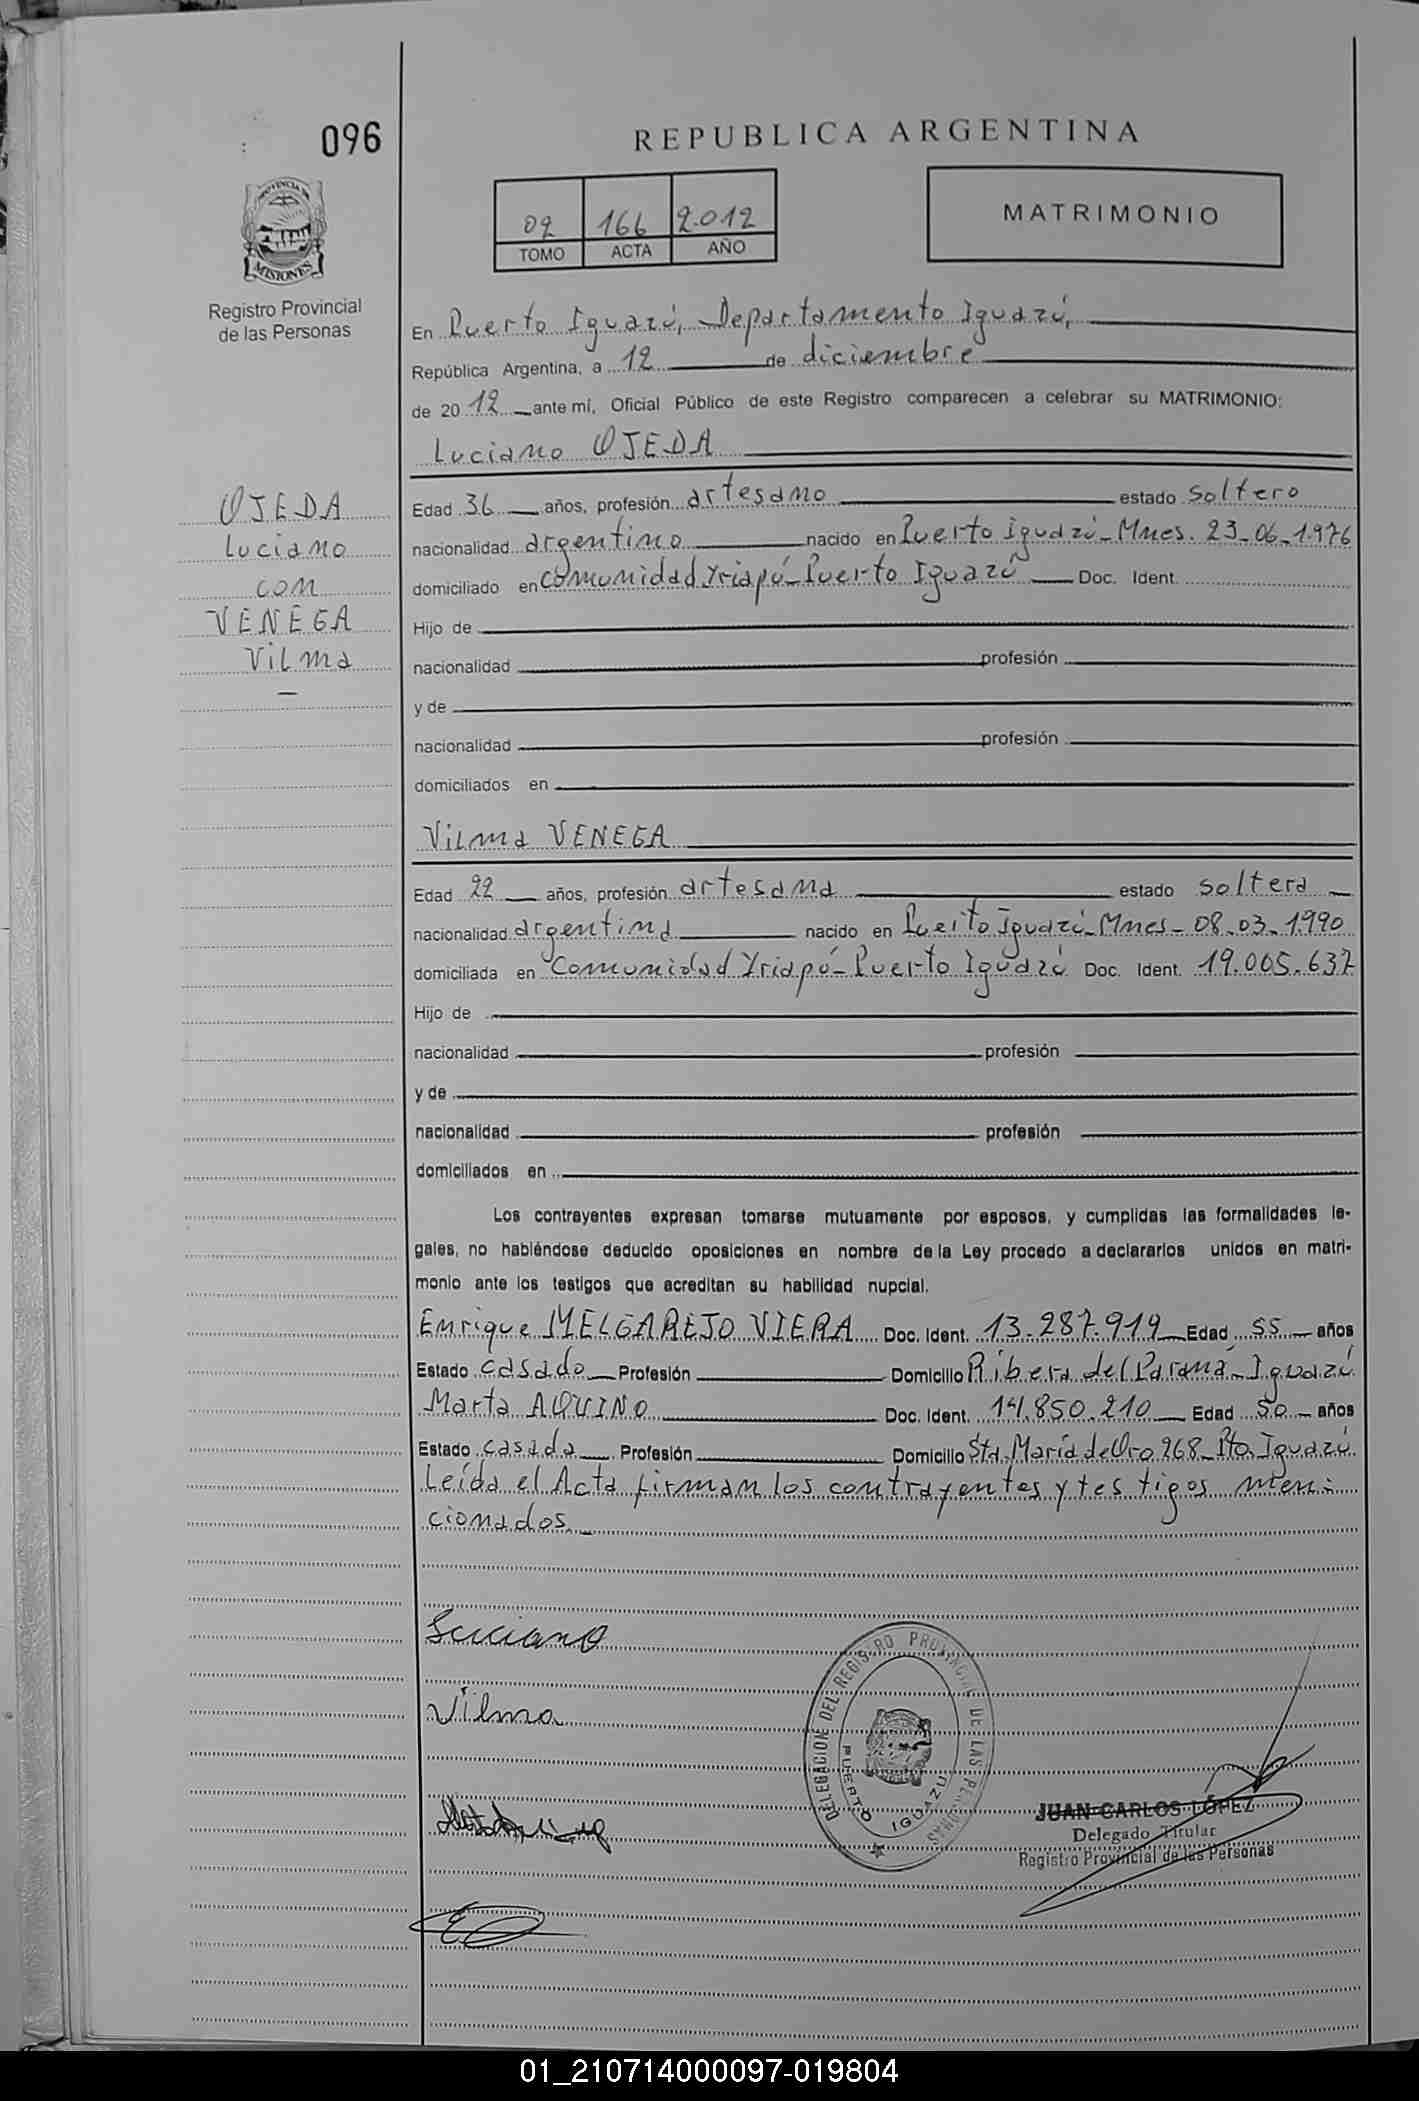 096
REPUBLICA ARGENTINA
PROVINCIA DE
MISIONES
Registro Provincial
de las Personas
02 166 2.012
TOMO ACTA AÑO
MATRIMONIO
En Puerto Iguazú, Departamento Iguazú,
República Argentina, a 12 de diciembre
de 2012 ante mí, Oficial Público de este Registro comparecen a celebrar su MATRIMONIO:
Luciano OJEDA
OJEDA
Luciano
con
VENEGA
Vilma
Edad 36 años, profesión artesano estado soltero
nacionalidad argentino nacido en Puerto Iguazú - Mnes. 23-06-1976
domiciliado en comunidad Yriapú - Puerto Iguazú Doc. Ident.
Hijo de
nacionalidad profesión
y de
nacionalidad profesión
domiciliados en
Vilma VENEGA
Edad 22 años, profesión artesana estado soltera
nacionalidad argentina nacido en Puerto Iguazú - Mnes - 08-03-1990
domiciliada en Comunidad Yriapú - Puerto Iguazú Doc. Ident. 19.005.637
Hijo de
nacionalidad profesión
y de
nacionalidad profesión
domiciliados en
Los contrayentes expresan tomarse mutuamente por esposos, y cumplidas las formalidades le-
gales, no habiéndose deducido oposiciones en nombre de la Ley procedo a declararlos unidos en matri-
monio ante los testigos que acreditan su habilidad nupcial.
Enrique MELGAREJO VIERA Doc. Ident. 13.287.919 Edad 55 años
Estado casado Profesión Domicilio Ribera del Paraná - Iguazú
Marta AQUINO Doc. Ident. 14.850.210 Edad 50 años
Estado casada Profesión Domicilio Sta. María de Oro 268 - Pto. Iguazú
Leída el Acta firman los contrayentes y testigos men-
cionados.
Luciano
Vilma
DELEGACION DEL REGISTRO PROVINCIAL DE LAS PERSONAS
PUERTO IGUAZU
JUAN CARLOS LÓPEZ
Delegado Titular
Registro Provincial de las Personas
01_210714000097-019804